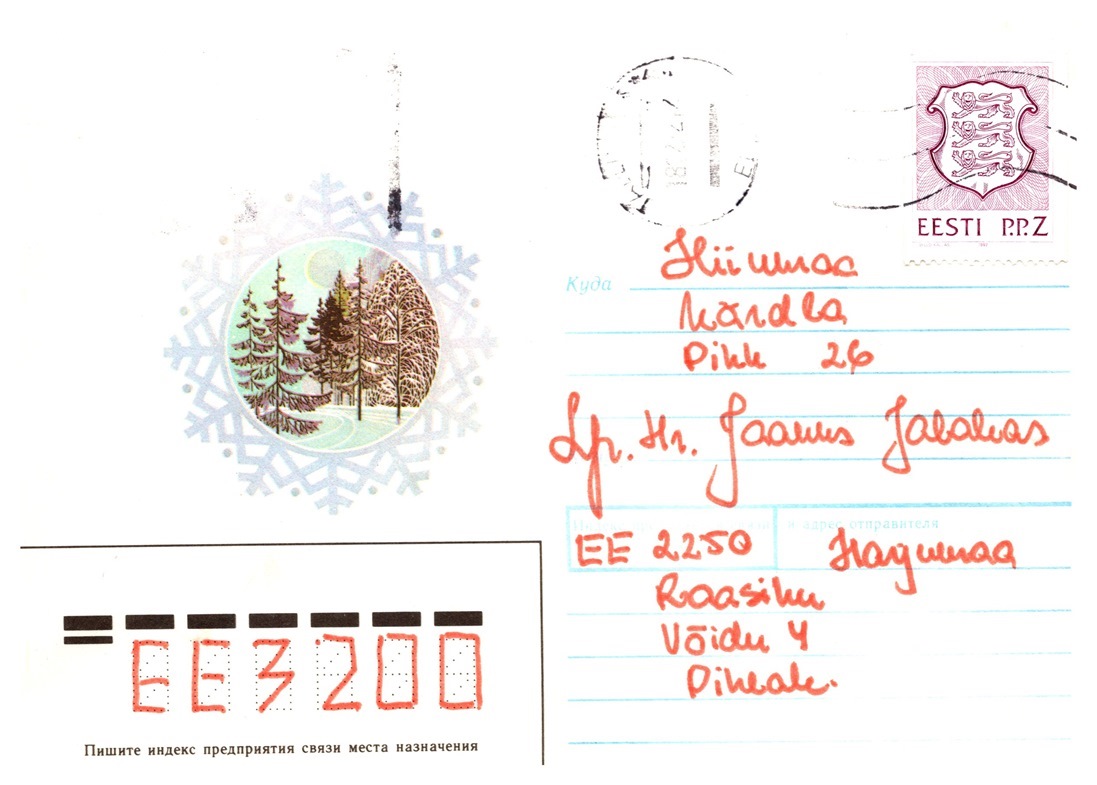 EESTI P.P. Z
Куда
Hiiumaa
Kärdla
Pikk 26
Lp. Hr. Jaanus Jabakas
и адрес отправителя
EE 2250 Harjumaa
Raasiku
Võidu 4
EE3200
Пишите индекс предприятия связи места назначения